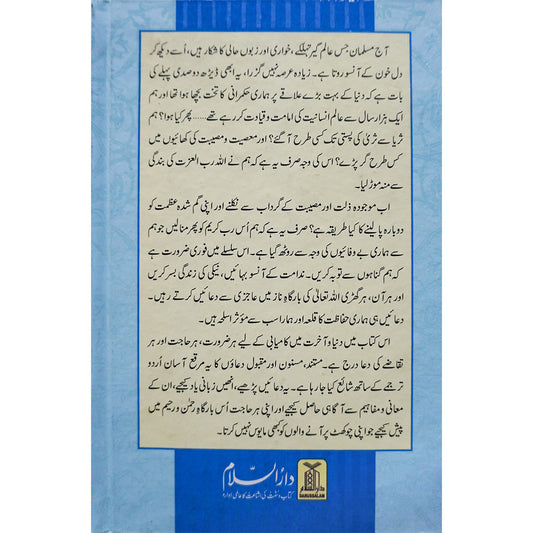 آج مسلمان جس عالم گیر تہلکے، خواری اور زبوں حالی کا شکار ہیں، اُسے دیکھ کر
دل خون کے آنسو روتا ہے۔ زیادہ عرصہ نہیں گزرا، یہ ابھی ڈیڑھ دو صدی پہلے کی
بات ہے کہ دنیا کے بہت بڑے علاقے پر ہماری حکمرانی کا تخت بچھا ہوا تھا اور ہم
ایک ہزار سال سے عالم انسانیت کی امامت و قیادت کر رہے تھے...... پھر کیا ہوا؟ ہم
ثریا سے ثریٰ کی پستی تک کسی طرح آ گئے؟ اور معصیت و مصیبت کی کھائیوں میں
کس طرح گر پڑے؟ اس کی وجہ صرف یہ ہے کہ ہم نے اللہ رب العزت کی بندگی
سے منہ موڑ لیا۔
اب موجودہ ذلت اور مصیبت کے گرداب سے نکلنے اور اپنی گم شدہ عظمت کو
دوبارہ پا لینے کا کیا طریقہ ہے؟ صرف یہ ہے کہ ہم اُس رب کریم کو پھر منا لیں جو ہم
سے ہماری بے وفائیوں کی وجہ سے روٹھ گیا ہے۔ اس سلسلے میں فوری ضرورت ہے
کہ ہم گناہوں سے توبہ کریں۔ ندامت کے آنسو بہائیں، نیکی کی زندگی بسر کریں
اور ہر آن، ہر گھڑی اللہ تعالیٰ کی بارگاہِ ناز میں عاجزی سے دعائیں کرتے رہیں۔
دعائیں ہی ہماری حفاظت کا قلعہ اور ہمارا سب سے مؤثر اسلحہ ہیں۔
اس کتاب میں دنیا و آخرت میں کامیابی کے لیے ہر ضرورت، ہر حاجت اور ہر
تقاضے کی دعا درج ہے۔ مستند، مسنون اور مقبول دعاؤں کا یہ مرقع آسان اُردو
ترجمے کے ساتھ شائع کیا جا رہا ہے۔ یہ دعائیں پڑھیے، انھیں زبانی یاد کیجیے، ان کے
معانی و مفاہیم سے آگاہی حاصل کیجیے اور اپنی ہر حاجت اُس بارگاہِ رحمٰن و رحیم میں
پیش کیجیے جو اپنی چوکھٹ پر آنے والوں کو کبھی مایوس نہیں کرتا۔
دارُالسّلام
کتاب و سنت کی اشاعت کا عالمی ادارہ
دارالسلام
DARUSSALAM